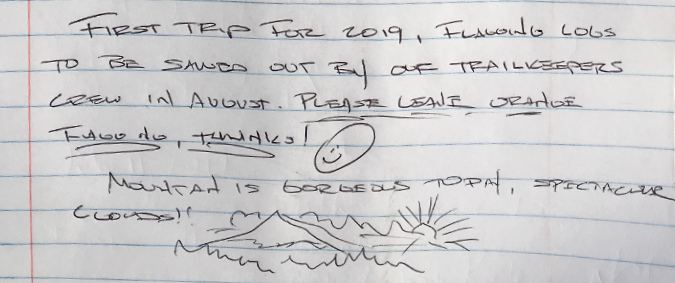 First trip for 2019, flagging logs
to be sawed out by our trailkeepers
crew in August. Please leave orange
flagging, thanks!
Mountain is gorgeous today, spectacular
clouds!!